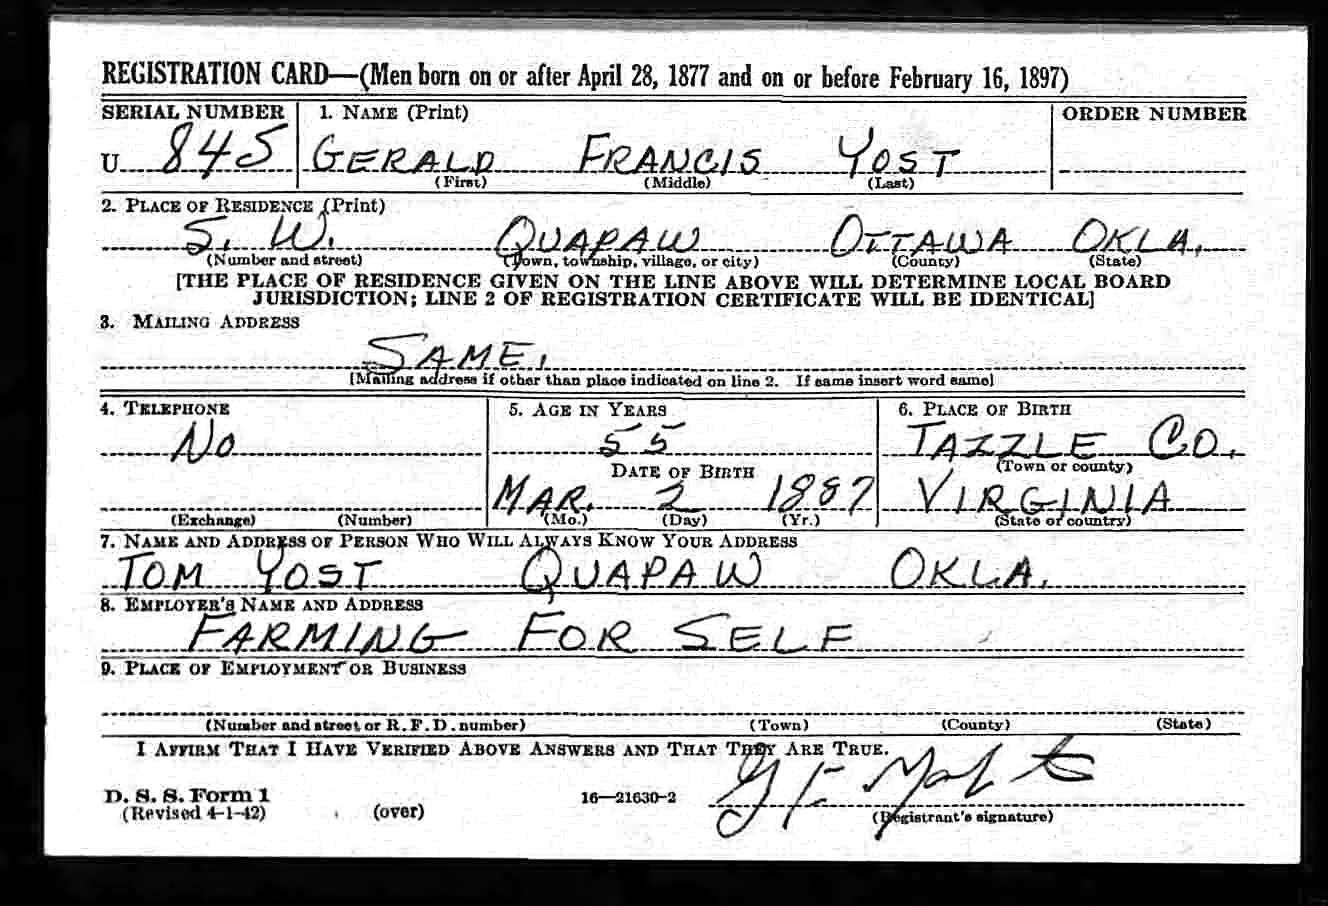 REGISTRATION CARD—(Men born on or after April 28, 1877 and on or before February 16, 1897)
SERIAL NUMBER 1. NAME (Print) ORDER NUMBER
U 845 GERALD FRANCIS YOST
(First) (Middle) (Last)
2. PLACE OF RESIDENCE (Print)
S. W. QUAPAW OTTAWA OKLA.
(Number and street) (Town, township, village, or city) (County) (State)
[THE PLACE OF RESIDENCE GIVEN ON THE LINE ABOVE WILL DETERMINE LOCAL BOARD
JURISDICTION; LINE 2 OF REGISTRATION CERTIFICATE WILL BE IDENTICAL]
3. MAILING ADDRESS
SAME.
[Mailing address if other than place indicated on line 2. If same insert word same]
4. TELEPHONE 5. AGE IN YEARS 6. PLACE OF BIRTH
No 55 TAZZLE CO.
DATE OF BIRTH (Town or county)
MAR. 2 1887 VIRGINIA
(Exchange) (Number) (Mo.) (Day) (Yr.) (State or country)
7. NAME AND ADDRESS OF PERSON WHO WILL ALWAYS KNOW YOUR ADDRESS
TOM YOST QUAPAW OKLA.
8. EMPLOYER'S NAME AND ADDRESS
FARMING FOR SELF
9. PLACE OF EMPLOYMENT OR BUSINESS
(Number and street or R. F. D. number) (Town) (County) (State)
I AFFIRM THAT I HAVE VERIFIED ABOVE ANSWERS AND THAT THEY ARE TRUE.
G F Yost
D. S. S. Form 1 16—21630-2
(Revised 4-1-42) (over) (Registrant's signature)